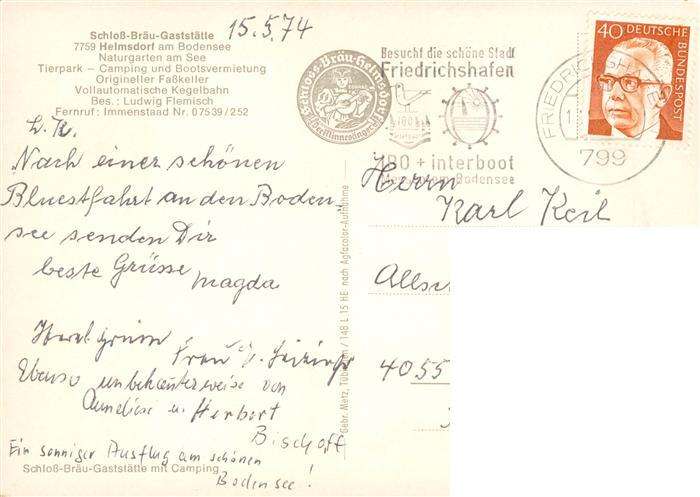 Schloß-Bräu-Gaststätte
7759 Helmsdorf am Bodensee
Naturgarten am See
Tierpark – Camping und Bootsvermietung
Origineller Faßkeller
Vollautomatische Kegelbahn
Bes.: Ludwig Flemisch
Fernruf: Immenstaad Nr. 07539/252
15.5.74
Schloss-Bräu-Helmsdorf
Besucht die schöne Stadt
Friedrichshafen
IBO + interboot
Messen am Bodensee
FRIEDRICHSHAFEN
799
40 DEUTSCHE
BUNDESPOST
L. K.
Nach einer schönen
Bluestfahrt an den Boden-
see senden Dir
beste Grüsse Magda
Frau
Ebenso unbekannterweise von
Anneliese u. Herbert
Bischoff
Ein sonniger Ausflug am schönen
Bodensee!
Schloß-Bräu-Gaststätte mit Camping
Gebr. Metz, Tübingen / 148 L 15 HE nach Agfacolor-Aufnahme
Herrn
Karl Keil
Allsch
4055